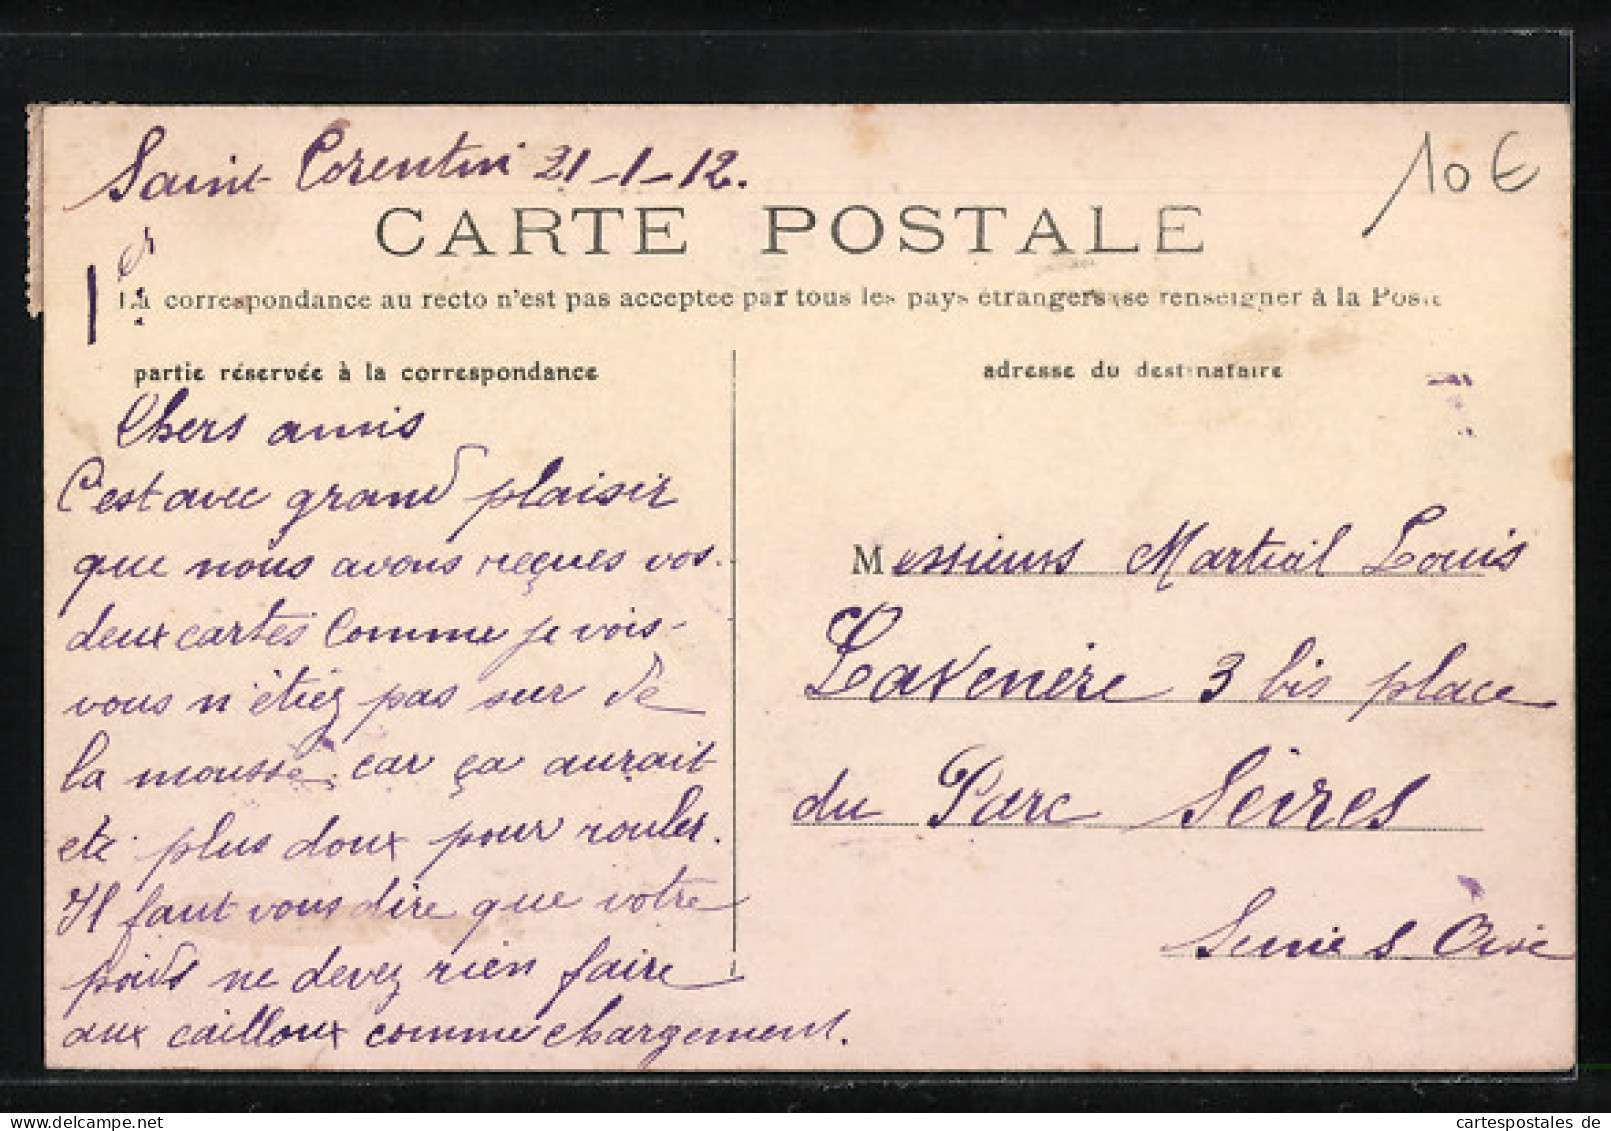 Saint Corentin 21-1-12.
10 €
CARTE POSTALE
La correspondance au recto n'est pas acceptée par tous les pays étrangers (se renseigner à la Poste
partie réservée à la correspondance
adresse du destinataire
Chers amis
C'est avec grand plaisir
que nous avons reçues vos
deux cartes Comme je vois
vous n'étiez pas sur de
la mousse, car ça aurait
eté plus doux pour rouler.
Il faut vous dire que votre
poids ne devez rien faire
aux cailloux comme chargement.
Messieurs Martial Louis
Lavenère 3 bis place
du Parc Sèvres
Seine & Oise
cartespostales de